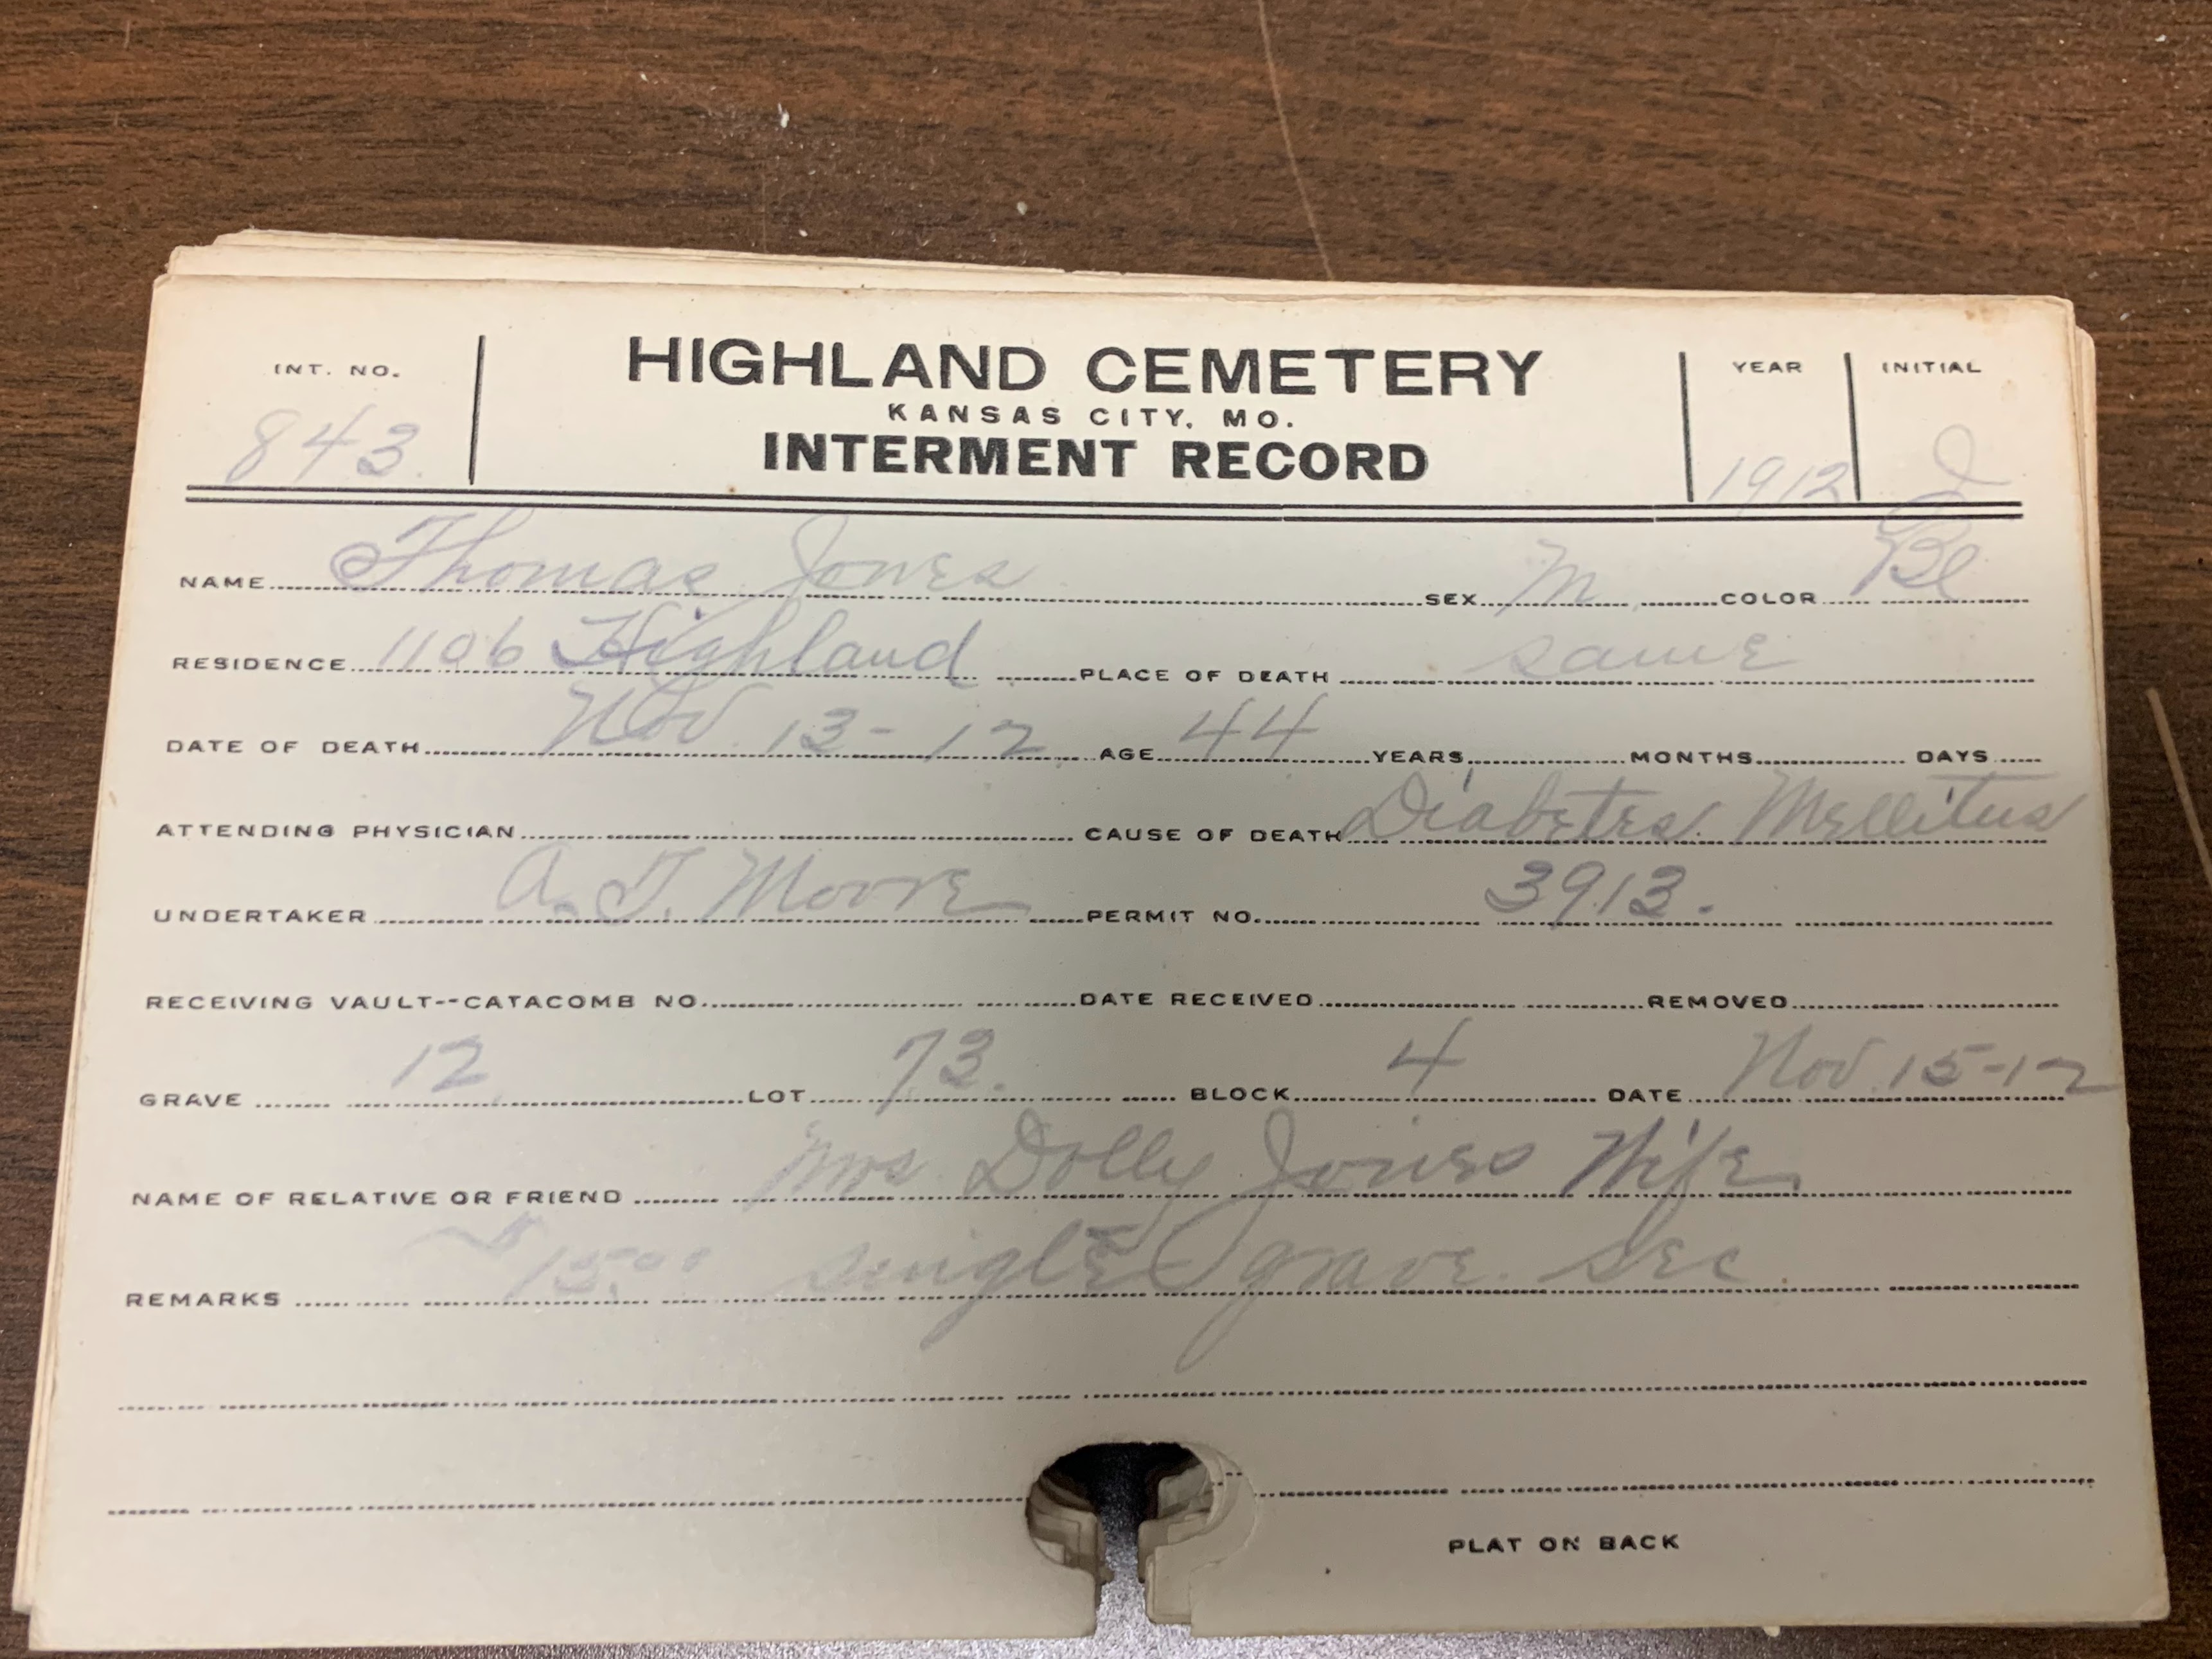 INT. NO. HIGHLAND CEMETERY YEAR INITIAL
KANSAS CITY, MO.
843. INTERMENT RECORD 1912 J
NAME Thomas Jones SEX M COLOR Bl
RESIDENCE 1106 Highland PLACE OF DEATH same
DATE OF DEATH Nov. 13-12 AGE 44 YEARS MONTHS DAYS
ATTENDING PHYSICIAN CAUSE OF DEATH Diabetes Mellitus
UNDERTAKER A. T. Moore PERMIT NO. 3913.
RECEIVING VAULT--CATACOMB NO. DATE RECEIVED REMOVED
GRAVE 12 LOT 73. BLOCK 4 DATE Nov. 15-12
NAME OF RELATIVE OR FRIEND Mrs Dolly Jones Wife
REMARKS $15.00 single grave sec.
PLAT ON BACK